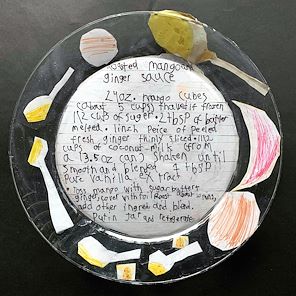 roasted mango
ginger sauce
24oz. mango cubes
(about 5 cups) thawed if frozen
1/2 cups of suger • 2 tbsp of butter
melted • 1 inch peice of peeled
fresh ginger thinly sliced • 1 1/2
cups of coconut milk (from
a 13.5oz can) shaken until
smooth and blended • 1 tbsp
pure vanilla extract
• toss mango with sugar, butter,
ginger, cover with foil Roast about
add other ingred and blend.
Put in jar and refrigerate